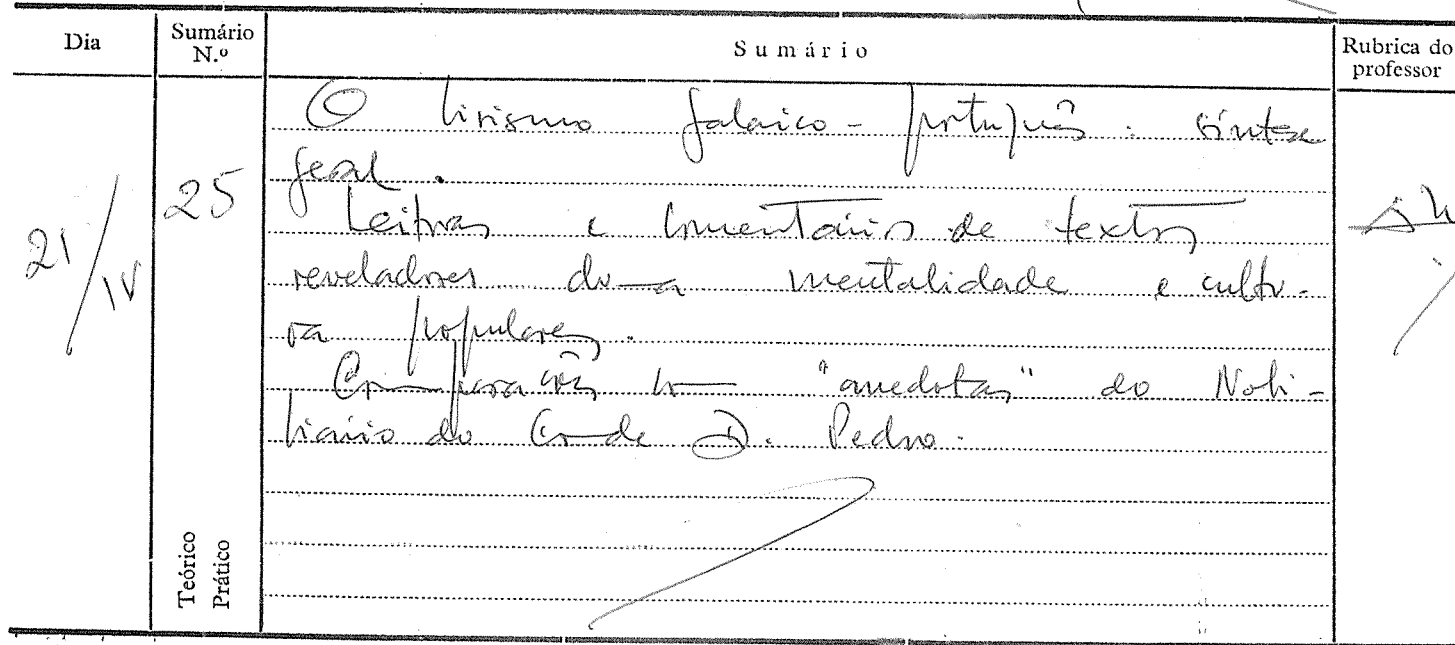 Dia
Sumário
N.º
Sumário
Rubrica do
professor
21/IV
25
O lirismo galaico-português: síntese
geral.
Leituras e comentários de textos
reveladores da mentalidade e cultu-
ra populares.
Comparações com "anedotas" do Nobi-
liário do Conde D. Pedro.
Teórico
Prático